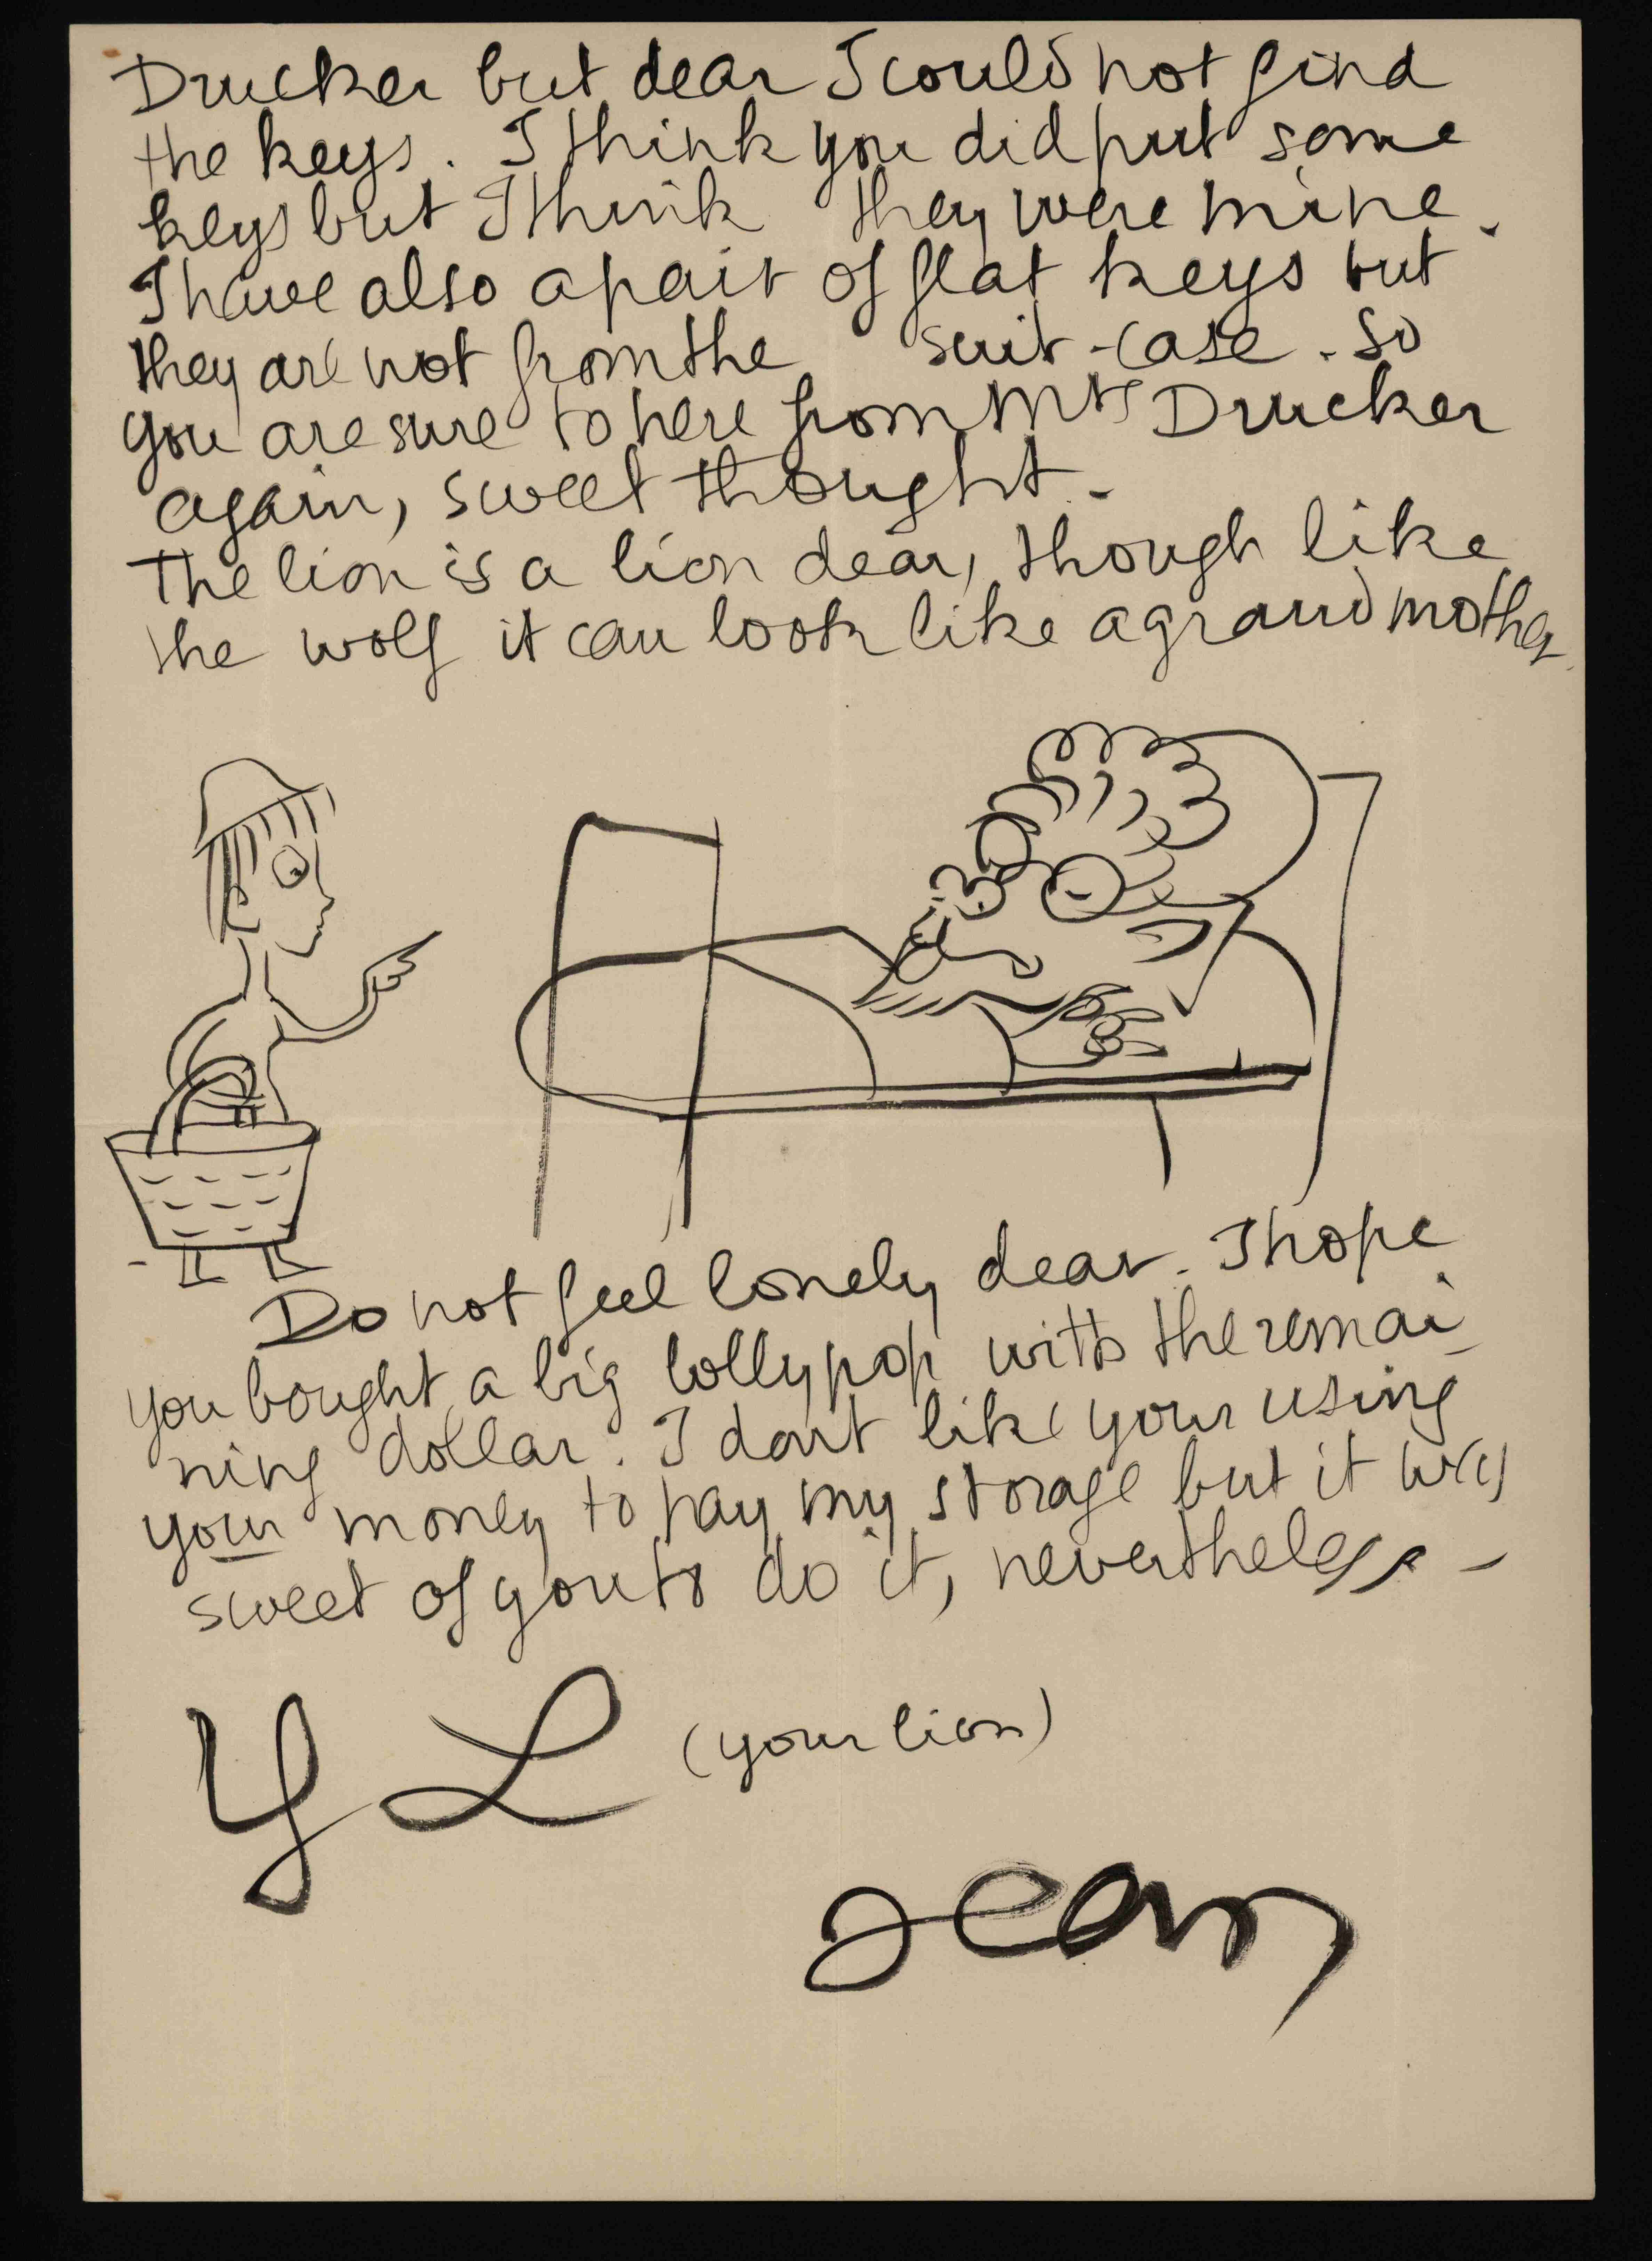 Drucker but dear I could not find
the keys. I think you did put some
keys but I think they were mine.
I have also a pair of flat keys but
they are not from the suit-case. So
you are sure to here from Mrs Drucker
again, sweet thought.
The lion is a lion dear, though like
the wolf it can look like a grand mother.
Do not feel lonely dear. I hope
you bought a big lollypop with the remai
ning dollar. I dont like your using
your money to pay my storage but it was
sweet of you to do it, nevertheless -
Y L (your lion)
Jean